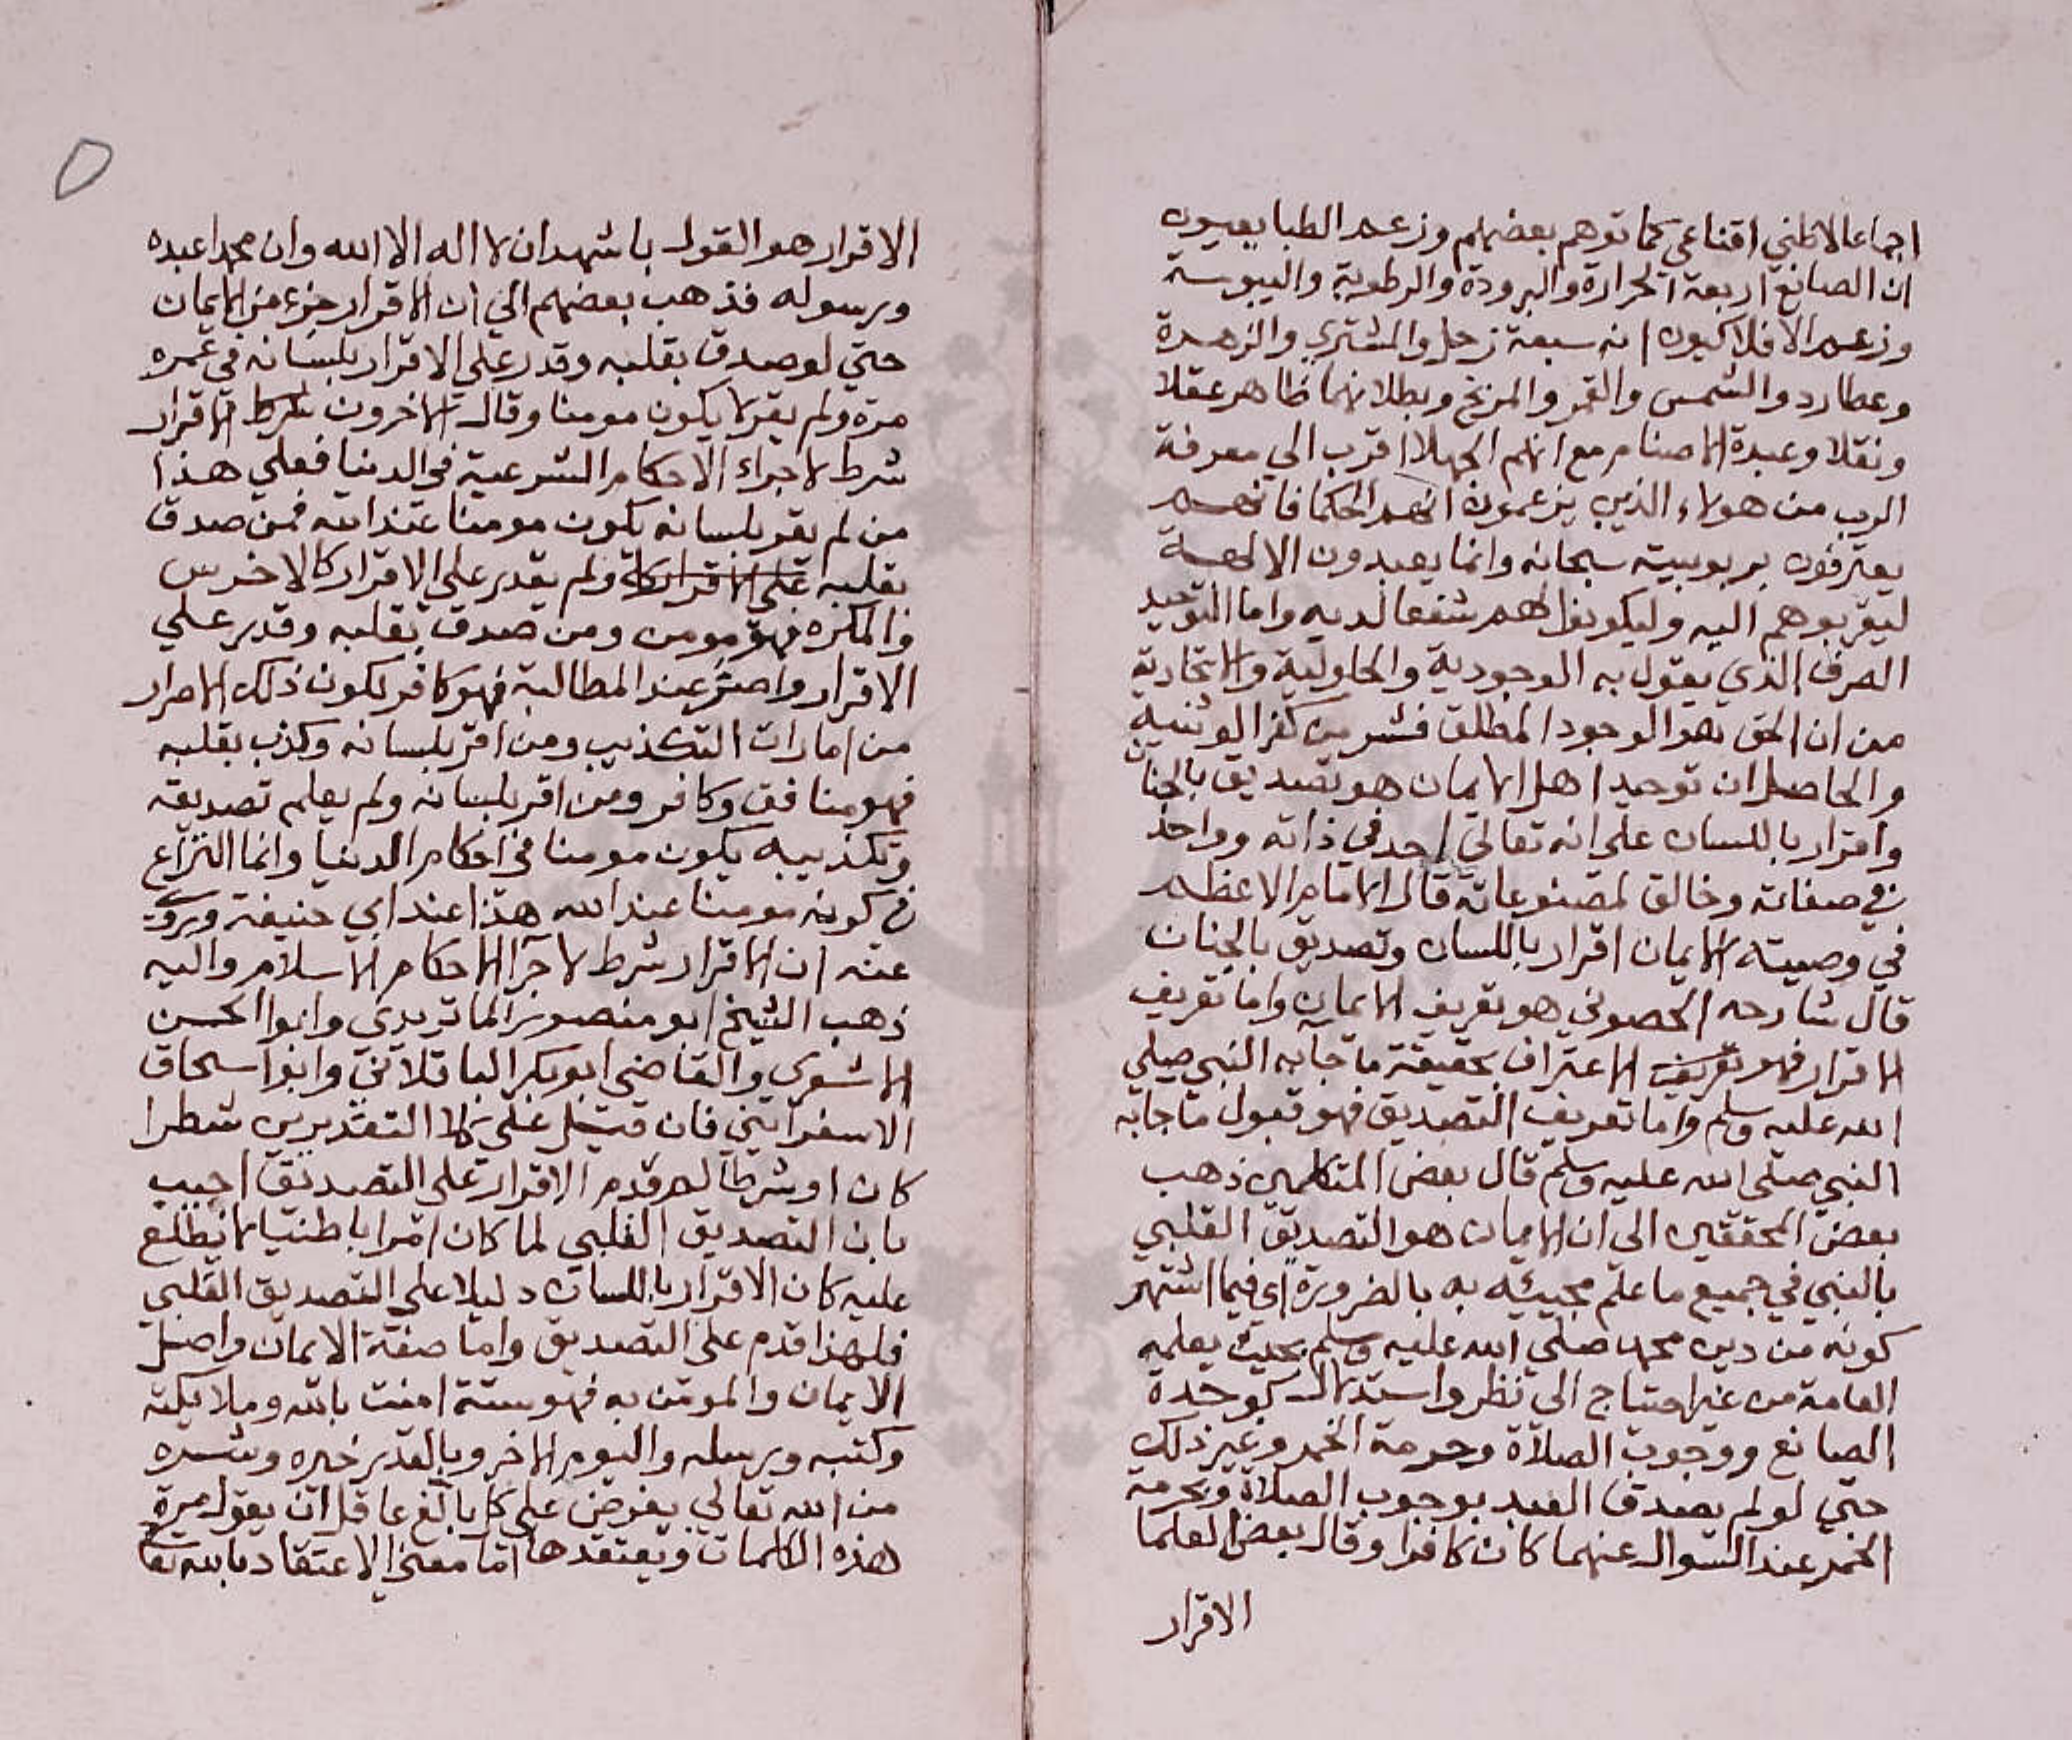 اجماعا لا ظني اقناعي كما توهم بعضهم وزعم الطبايعيون
ان الصانع اربعة الحرارة والبرودة والرطوبة واليبوسة
وزعم الافلاكيون انه سبعة زحل والمشتري والزهرة
وعطارد والشمس والقمر والمريخ وبطلانهما ظاهر عقلا
ونقلا وعبدة الاصنام مع انهم الجهلا اقرب الي معرفة
الرب من هولاء الذين يزعمون انهم الحكما فانهم
يعترفون بربوبيته سبحانه وانما يعبدون الالهة
ليقربوهم اليه وليكونوا لهم شفعا لديه واما التوحيد
الصرف الذي يقول به الوجودية والحلولية والاتحادية
من ان الحق هو الوجود المطلق فشر من كفر الوثنية
والحاصل ان توحيد اهل الايمان هو تصديق بالجنان
واقرار باللسان على انه تعالي احد في ذاته وواحد
في صفاته وخالق لمصنوعاته قال الامام الاعظم
في وصيته الايمان اقرار باللسان وتصديق بالجنان
قال شارحه الحصوني هو تعريف الايمان واما تعريف
الاقرار فهو تعريف الاعتراف بحقيقة ما جا به النبي صلي
الله عليه وسلم واما تعريف التصديق فهو قبول ما جا به
النبي صلى الله عليه وسلم قال بعض المتكلمين ذهب
بعض المحققين الى ان الايمان هو التصديق القلبي
بالنبي في جميع ما علم مجيئه به بالضرورة اي فيما اشتهر
كونه من دين محمد صلي الله عليه وسلم بحيث يعلمه
العامة من غير احتياج الي نظر واستدلال كوحدة
الصانع ووجوب الصلاة وحرمة الخمر وغير ذلك
حتي لو لم يصدق العبد بوجوب الصلاة وبحرمة
الخمر عند السوال عنهما كان كافرا وقال بعض العلما
الاقرار
الاقرار هو القول باشهد ان لا اله الا الله وان محمدا عبده
ورسوله فذهب بعضهم الي ان الاقرار جزء من الايمان
حتي لو صدق بقلبه وقدر علي الاقرار بلسانه في عمره
مرة ولم يقر لا يكون مومنا وقال الاخرون شرط الاقرار
شرط لاجراء الاحكام الشرعية في الدنيا فعلي هذا
من لم يقر بلسانه يكون مومنا عند الله فمن صدق
بقلبه علي الاقرار ولم يقدر علي الاقرار كالاخرس
والمكره فهو مومن ومن صدق بقلبه وقدر علي
الاقرار واصر عند المطالبة فهو كافر لكون ذلك الاصرار
من امارات التكذيب ومن اقر بلسانه وكذب بقلبه
فهو منافق وكافر ومن اقر بلسانه ولم يعلم تصديقه
وتكذيبه يكون مومنا في احكام الدنيا وانما النزاع
في كونه مومنا عند الله هذا عند ابي حنيفة وروي
عنه ان الاقرار شرط لاجرا الاحكام الاسلام واليه
ذهب الشيخ ابو منصور الماتريدي وابوا الحسن
الاشعري والقاضي ابو بكر الباقلاني وابوا اسحاق
الاسفرايني فان قيل علي كلا التقديرين شطرا
كان او شرطا لم قدم الاقرار على التصديق اجيب
بان التصديق القلبي لما كان امرا باطنيا لا يطلع
عليه كان الاقرار باللسان دليلا علي التصديق القلبي
فلهذا قدم على التصديق واما صفة الايمان واصل
الايمان والمومن به فهو ستة امنت بالله وملايكته
وكتبه ورسله واليوم الاخر وبالقدر خيره وشره
من الله تعالي يفرض علي كل بالغ عاقل ان يقول مرة
هذه الكلمات ويعتقدها اما معني الاعتقاد بالله تعا